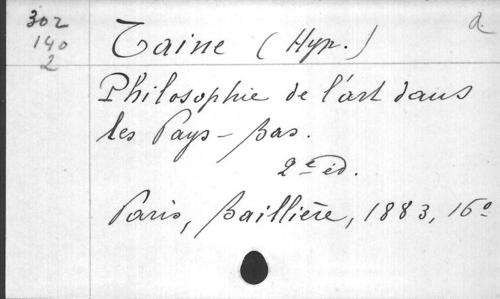 302
140
2
Taine (Hyp.)
a.
Philosophie de l'art dans
les Pays-bas.
2e éd.
Paris, Baillière, 1883, 16º